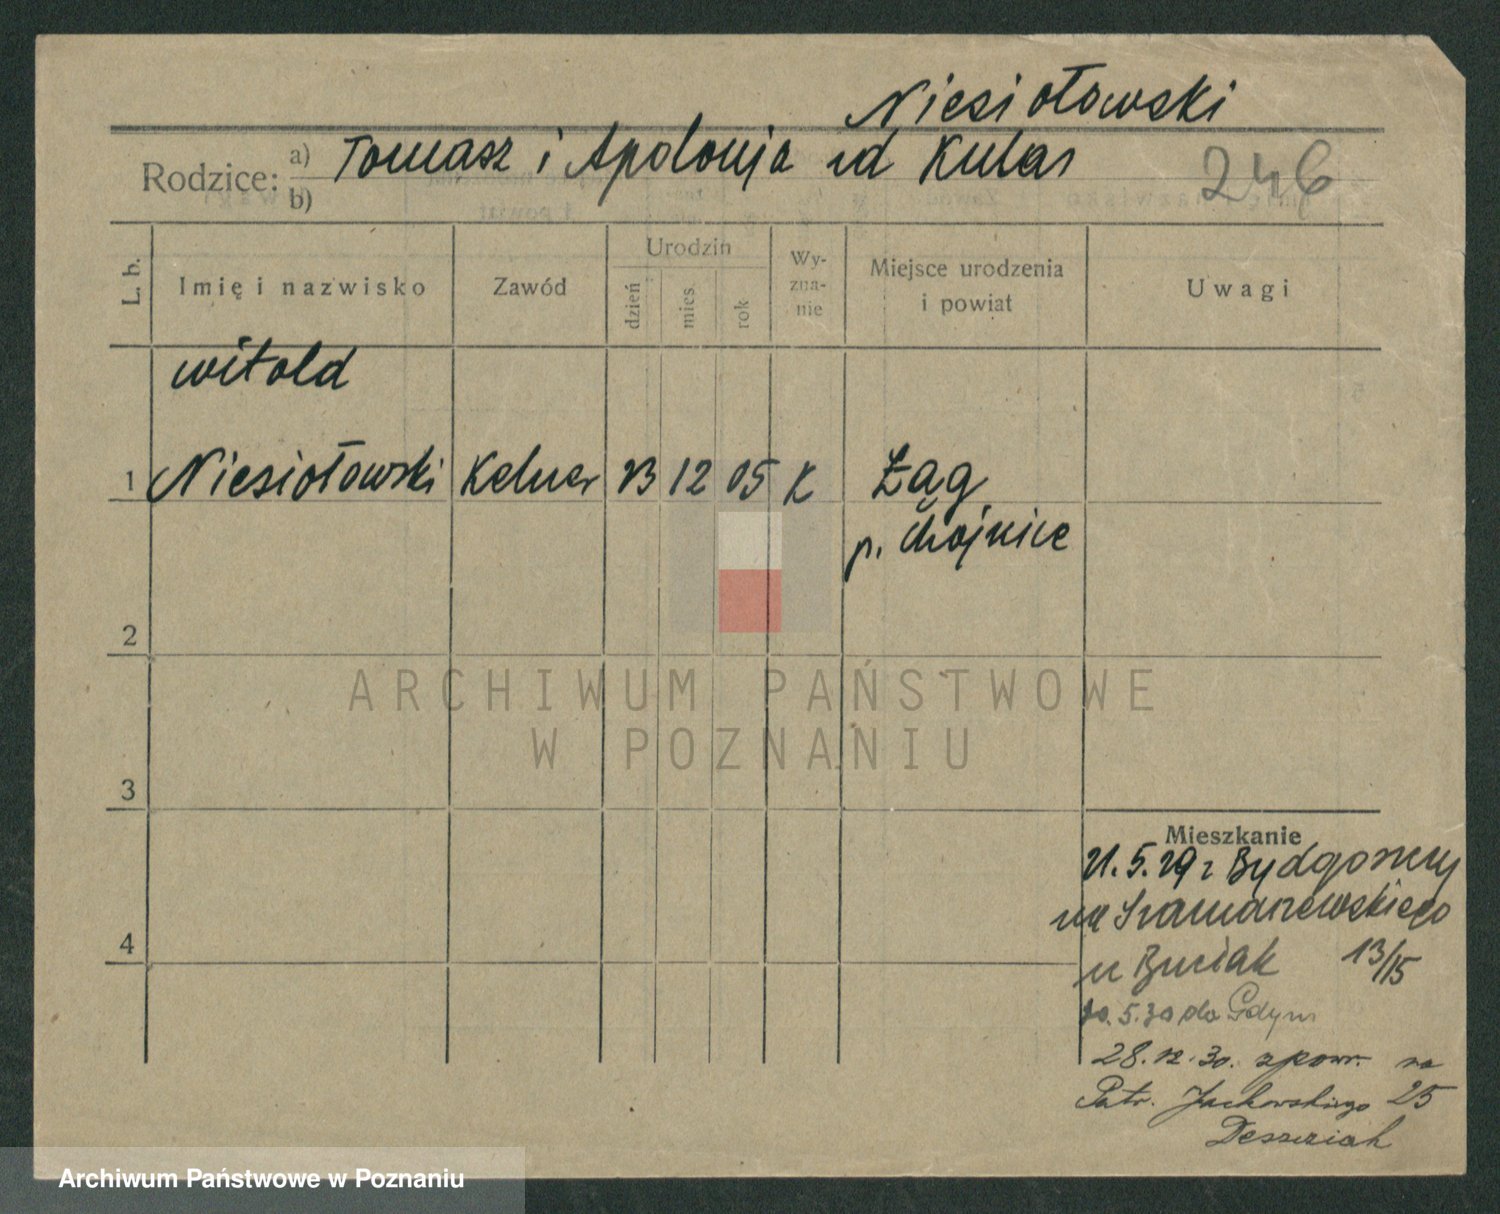 Niesiołowski
Rodzice: a) Tomasz i Apolonja ud Kulas
b)
246
L. b. Imię i nazwisko Zawód Urodzin dzień mies. rok Wy-zna-nie Miejsce urodzenia i powiat Uwagi
Witold
1 Niesiołowski Kelner 23 12 05 K Łąg
p. Chojnice
2
ARCHIWUM PAŃSTWOWE
W POZNANIU
3
Mieszkanie
21.5.29 z Bydgoszczy
na Szamarzewskiego
4
u Buciak 13/15
30.5.30 do Gdyni
28.12.30. z powr. na
Patr. Jackowskiego 25
Archiwum Państwowe w Poznaniu